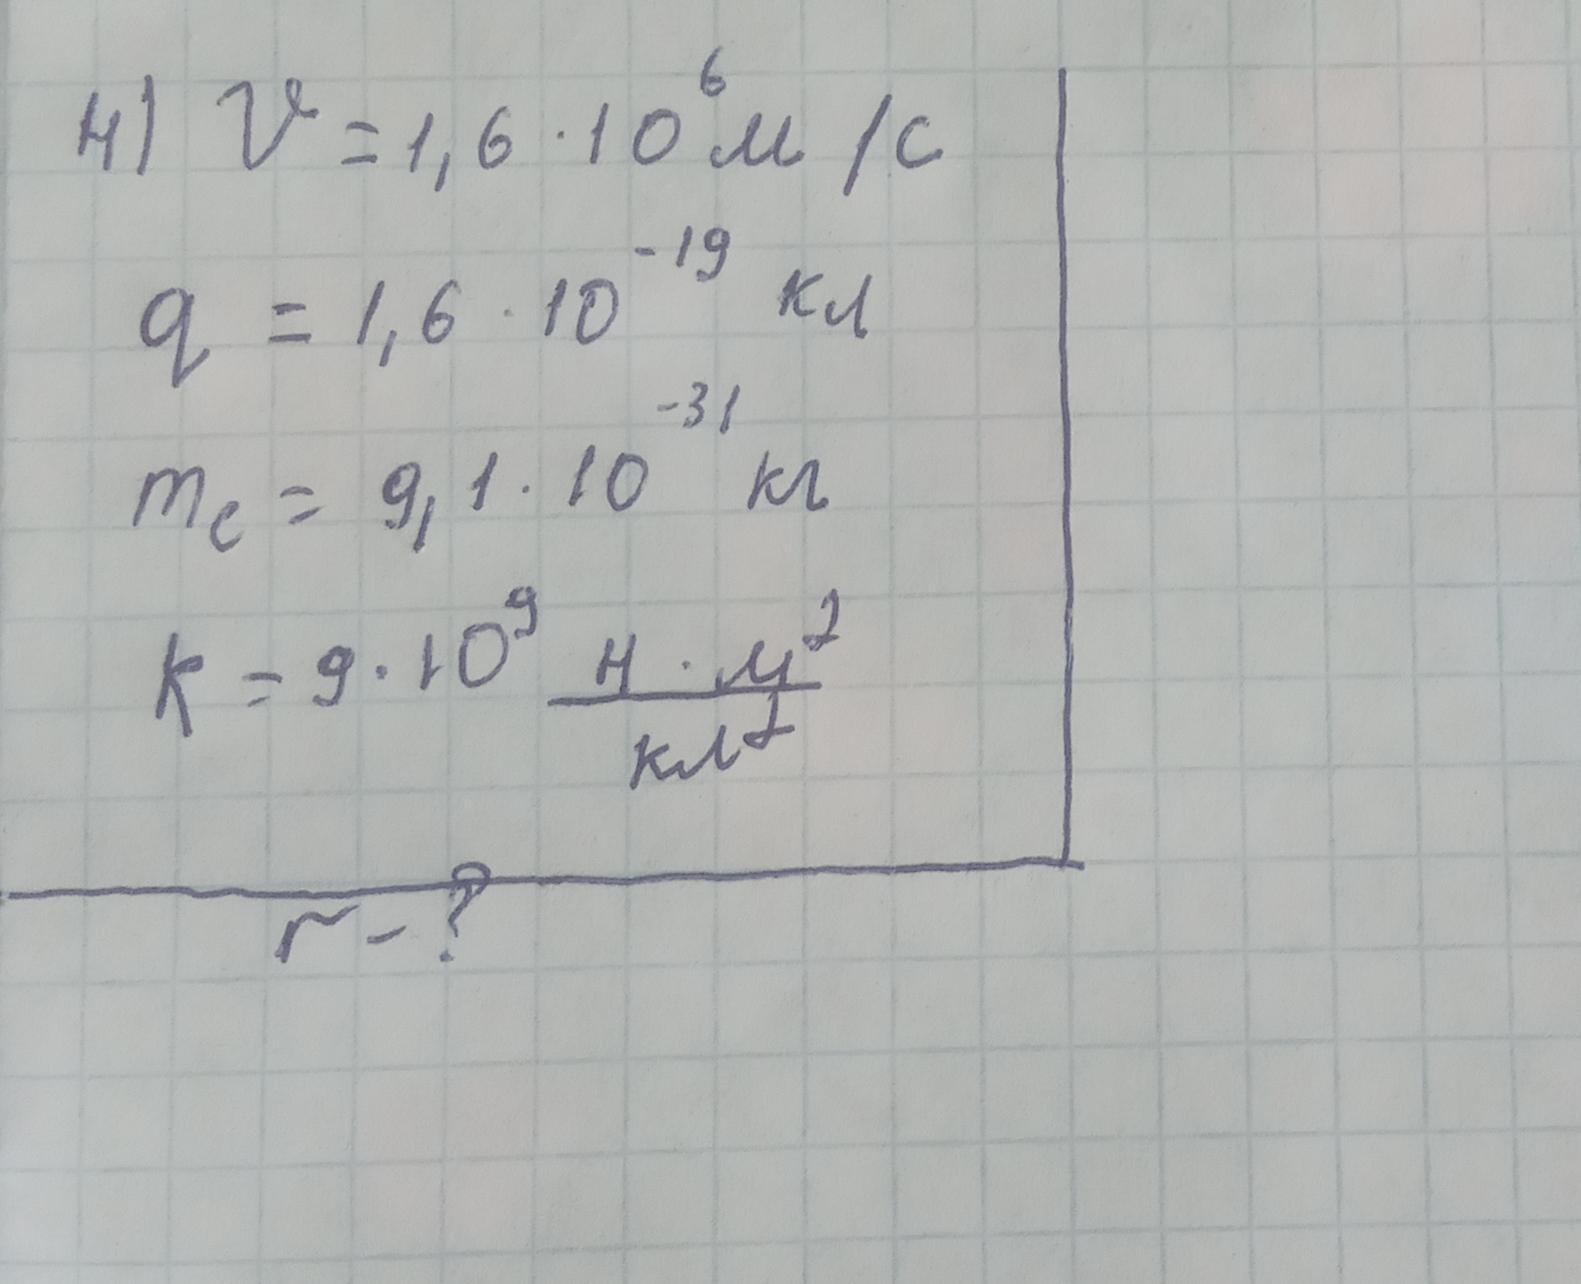 4) V = 1,6 · 10⁶ м/с
q = 1,6 · 10⁻¹⁹ кл
mₑ = 9,1 · 10⁻³¹ кг
k = 9 · 10⁹ н · м²
кл²
r - ?